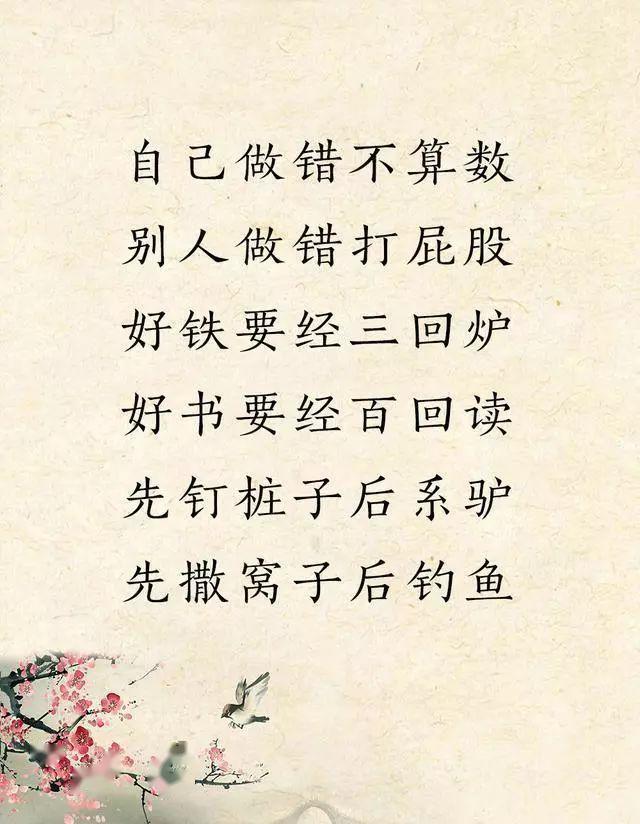 自己做错不算数
别人做错打屁股
好铁要经三回炉
好书要经百回读
先钉桩子后系驴
先撒窝子后钓鱼